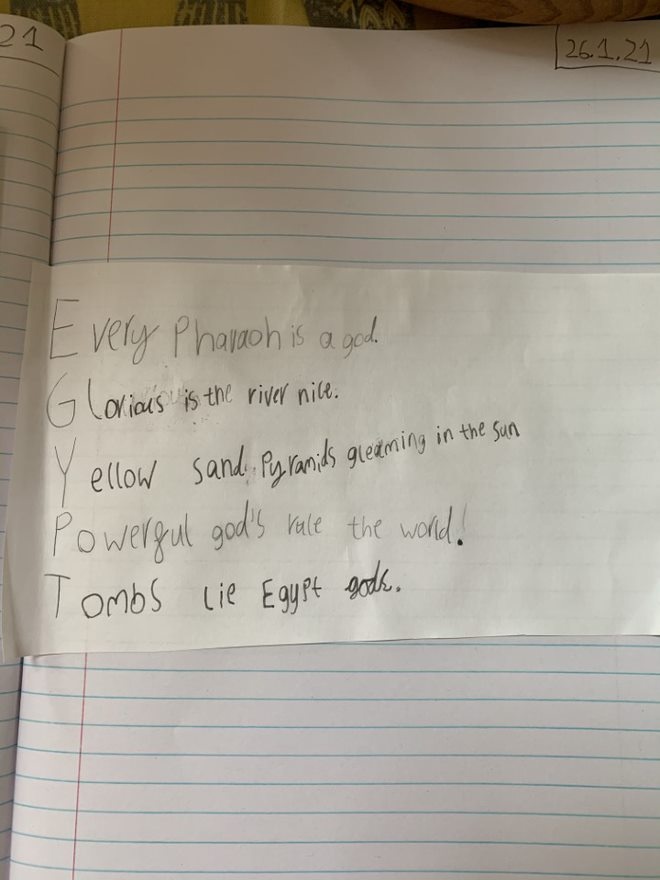 21
26.1.21
Every Pharaoh is a god.
Glorious is the river nice.
Yellow sand. Pyramids gleaming in the sun
Powerful god's rule the world!
Tombs lie Egypt gods.